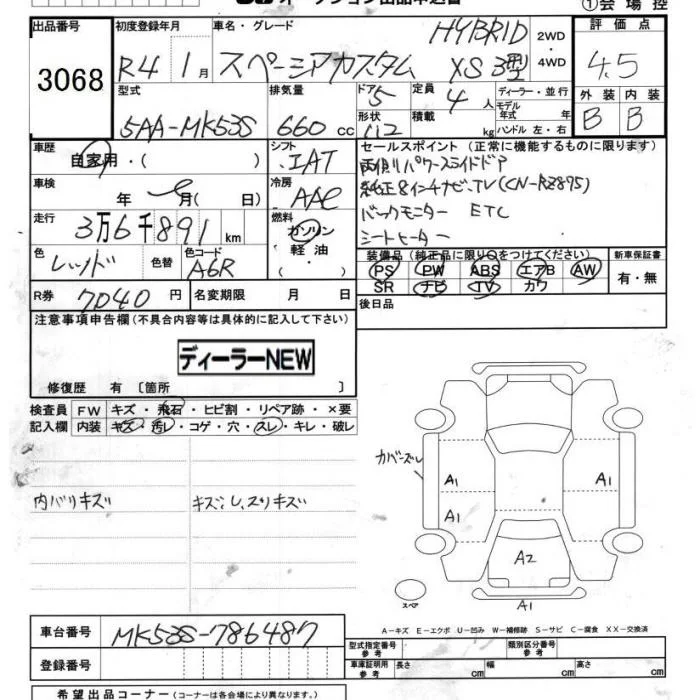 ①会場控
出品番号 初度登録年月 車名・グレード HYBRID 2WD ・ 4WD 評価点
3068 R4 1月 スペーシアカスタム XS 3型 4.5
型式 排気量 ドア 5 定員 4人 ディーラー・並行 外装 内装
5AA-MK53S 660cc 形状 積載 kg モデル年式 年 B B
ハンドル 左・右
車歴 シフト セールスポイント (正常に機能するものに限ります)
自家用・( ) IAT 両側パワースライドドア
車検 冷房 純正8インチナビ,TV(CN-RZ875)
年 月( 日) AAC バックモニター ETC
走行 燃料 シートヒーター
3万6千891km ガソリン・軽油・( )
色 色替 色コード 装備品(純正品に限り○をつけてください) 新車保証書
レッド A6R PS PW ABS エアB AW 有・無
SR ナビ TV カワ
R券 7040円 名変期限 月 日 後日品
注意事項申告欄(不具合内容等は具体的に記入して下さい)
ディーラーNEW
修復歴 有〔箇所 〕
検査員 FW キズ・飛石・ヒビ割・リペア跡・×要
記入欄 内装 キズ・汚レ・コゲ・穴・スレ・キレ・破レ
カバーズレ
A1 A1
内バリキズ
A1
A2
スペア
A1
A−キズ E−エクボ U−凹み W−補修跡 S−サビ C−腐食 XX−交換済
車台番号 MK53S-786487
型式指定番号 参考 類別区分番号 参考
登録番号 車庫証明用 参考 長さ cm 幅 cm 高さ cm
希望出品コーナー(コーナーは各会場により異なります。)